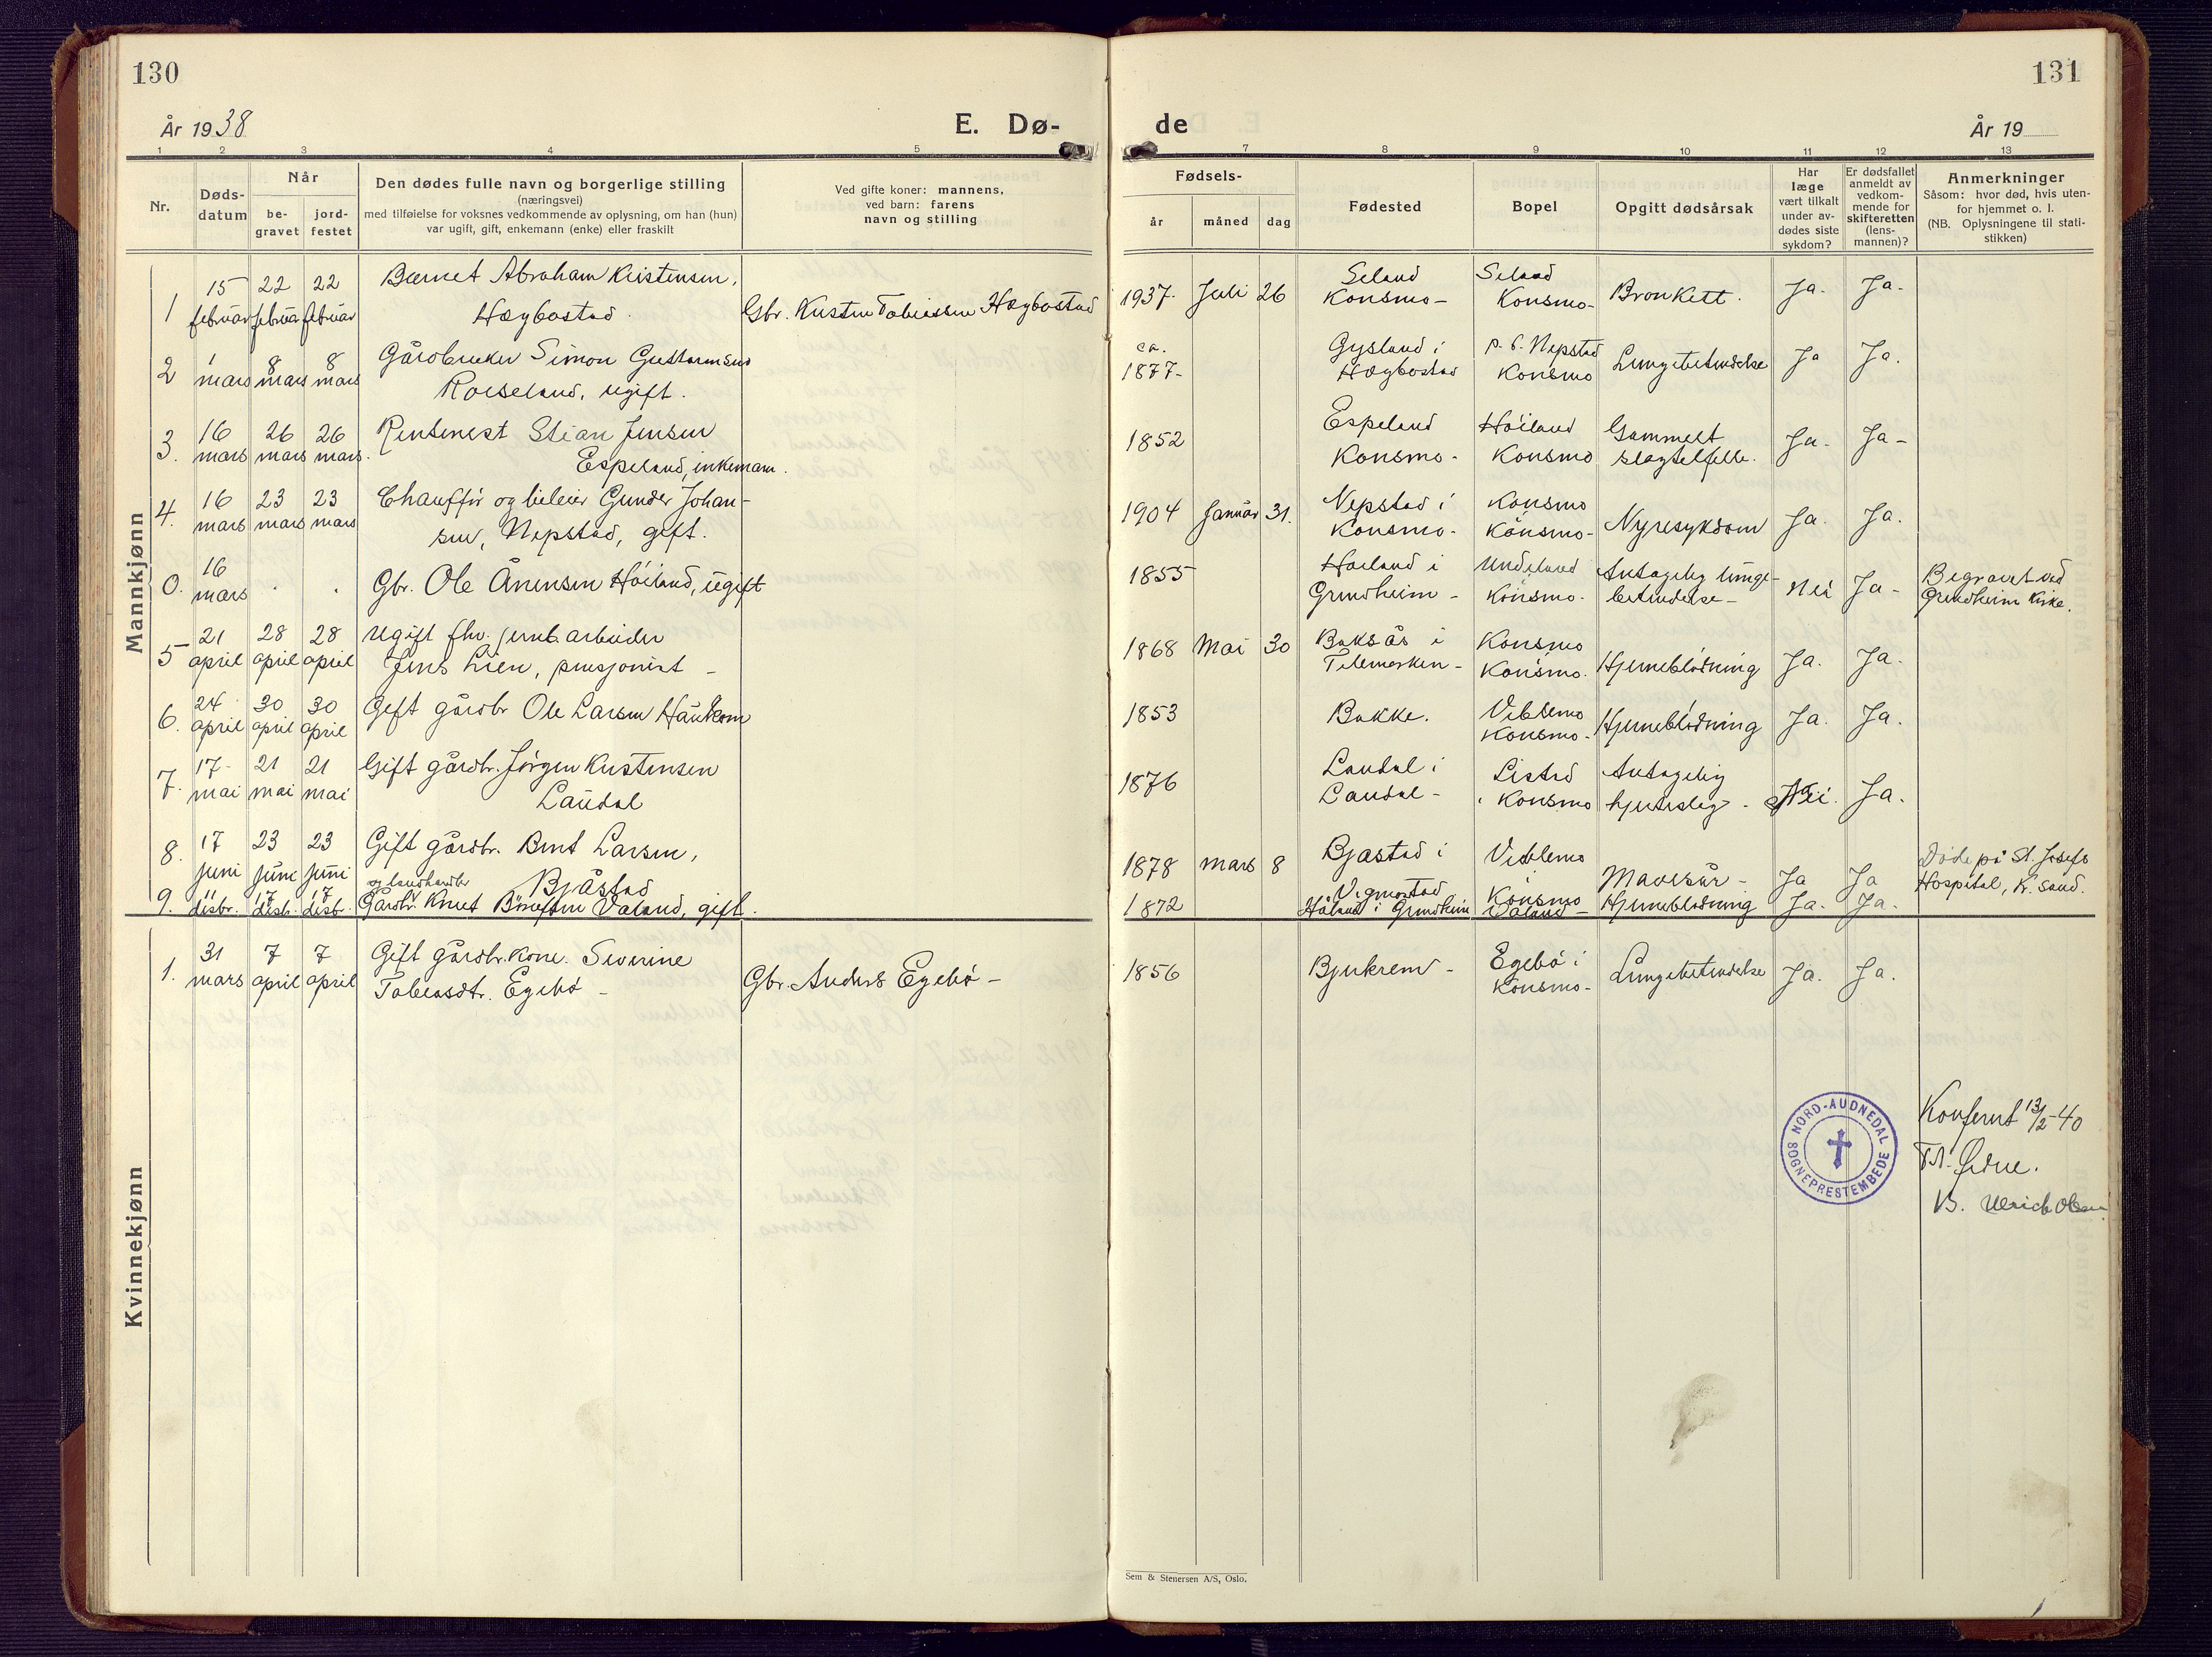 130
År 1938
E. Dø-
1 2 3 4 5
Nr.
Døds-
datum
Når
be-
gravet
jord-
festet
Den dødes fulle navn og borgerlige stilling
(næringsvei)
med tilføielse for voksnes vedkommende av oplysning, om han (hun)
var ugift, gift, enkemann (enke) eller fraskilt
Ved gifte koner: mannens,
ved barn: farens
navn og stilling
Mannkjønn
1 15 februar 22 februar 22 februar Barnet Abraham Kristensen,
Hægbostad. Gbr. Kristen Tobiassen Hægbostad
2 1 mars 8 mars 8 mars Gårdbruker Simon Gustavnsen
Roiseland, ugift.
3. 16 mars 26 mars 26 mars. Rentenest Stian Jensen
Espeland, enkemann.
4. 16 mars 23 mars 23 mars Chauffør og bileier Gunder Johan-
sen, Nepstad, gift.
0. 16 mars . . Gbr. Ole Ånensen Høiland, ugift
5 21 april 28 april 28 april Ugift fhv. jernb.arbeider
Jens Lien, pensjonist -
6. 24 april 30 april 30 april Gift gårdbr Ole Larsen Haukom
7. 17 mai 21 mai 21 mai Gift gårdbr. Jörgen Kristensen
Laudal
8. 17 juni 23 juni 23 juni Gift gårdbr. Bent Larsen,
Bjåstad
og landhandler
9. 11 desbr. 17 desb. 17 desb. Gårdbr. Knut Valand, gift.
Kvinnekjønn
1. 31 mars 7 april 7 april Gift gårdbr. kone. Severine
Tobiasdtr. Egebø - Gbr. Anders Egebø -
131
de
År 19
7 8 9 10 11 12 13
Fødsels-
år måned dag
Fødested
Bopel
Opgitt dødsårsak
Har
læge
vært tilkalt
under av-
dødes siste
sykdom?
Er dødsfallet
anmeldt av
vedkom-
mende for
skifteretten
(lens-
mannen)?
Anmerkninger
Såsom: hvor død, hvis uten-
for hjemmet o. l.
(NB. Oplysningene til stati-
stikken)
1937. Juli 26 Seland Konsmo- Seland Konsmo- Bronkett. Ja. Ja.
ca. 1877- Gysland i Hægbostad p. t. Nepstad Konsmo Lungebetendelse Ja Ja.
1852 Espeland Konsmo- Høiland Konsmo Gammelt slagtilfelle. Ja. Ja-
1904 Januar 31. Nepstad i Konsmo- Konsmo Konsmo- Nyresykdom Ja. Ja.
1855 Høiland i Grindheim - Undeland Konsmo. Antagelig lunge-
betendelse - Nei Ja- Begravet ved
Grindheim Kirke.
1868 Mai 30 Buksås i Telemarken- Konsmo Konsmo. Hjerneblødning Ja. Ja.
1853 Bakke. Viblemo Konsmo- Hjerneblødning Ja. Ja.
1876 Laudal i Laudal- Listad i Konsmo Antagelig
hjerteslag - Nei. Ja.
1878 Mars 8 Bjåstad i Vigmostad Viblemo Konsmo Mavesår - Ja Ja Døde på St. Josefs
Hospital, Kr.sand.
1872 Håland i Grindheim Valand - Hjerneblødning Ja. Ja.
1856 Bjerkrem - Egebø i Konsmo- Lungebetendelse Ja. Ja.
NORD-AUDNEDAL SOGNEPRESTEMBEDE
Konferert 13/2-40
Øidne.
B. Ulrich Olsen
Sem & Stenersen A/S, Oslo.